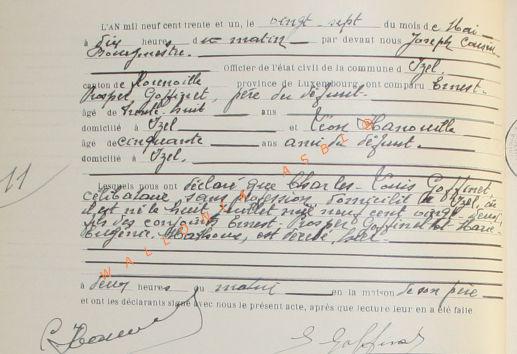 L'AN mil neuf cent trente et un, le vingt sept du mois de Mai
à dix heures du matin par devant nous Joseph
Bourgmestre
Officier de l'état civil de la commune d'Izel,
canton de Florenville province de Luxembourg, ont comparu Ernest
Prosper Goffinet, père du défunt
âgé de trente huit ans
domicilié à Izel et Léon Hanouille
âgé de cinquante ans ami du défunt.
domicilié à Izel.
11
Lesquels nous ont déclaré que Charles-Louis Goffinet,
célibataire, sans profession, domicilié à Izel, où
il est né le huit juillet mil neuf cent vingt-deux,
fils des conjoints Ernest, Prosper Goffinet et Marie
Eugénie est décédé hier
WALLONIA ASBL
à deux heures du matin en la maison de son père
et ont les déclarants signé avec nous le présent acte, après que lecture leur en a été faite
E Goffinet